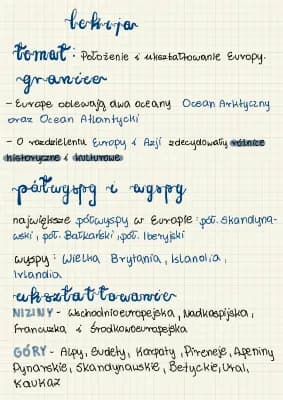 lekcja
temat: Położenie i ukształtowanie Europy.
granice
- Europe oblewają dwa oceany Ocean Arktyczny
oraz Ocean Atlantycki
- O rozdzieleniu Europy i Azji zdecydowały różnice
historyczne i kulturowe
półwyspy i wyspy
największe półwyspy w Europie: pół. Skandyna-
wski, pół. Bałkański, pół. Iberyjski
wyspy: Wielka Brytania, Islandia,
Irlandia
ukształtowanie
NIZINY - Wschodnioeuropejska, Nadkaspijska,
Francuzka i Środkowoeuropejska
GÓRY - Alpy, Sudety, Karpaty, Pireneje, Apeniny
Dynarskie, Skandynawskie, Betyckie, Ural,
Kaukaz